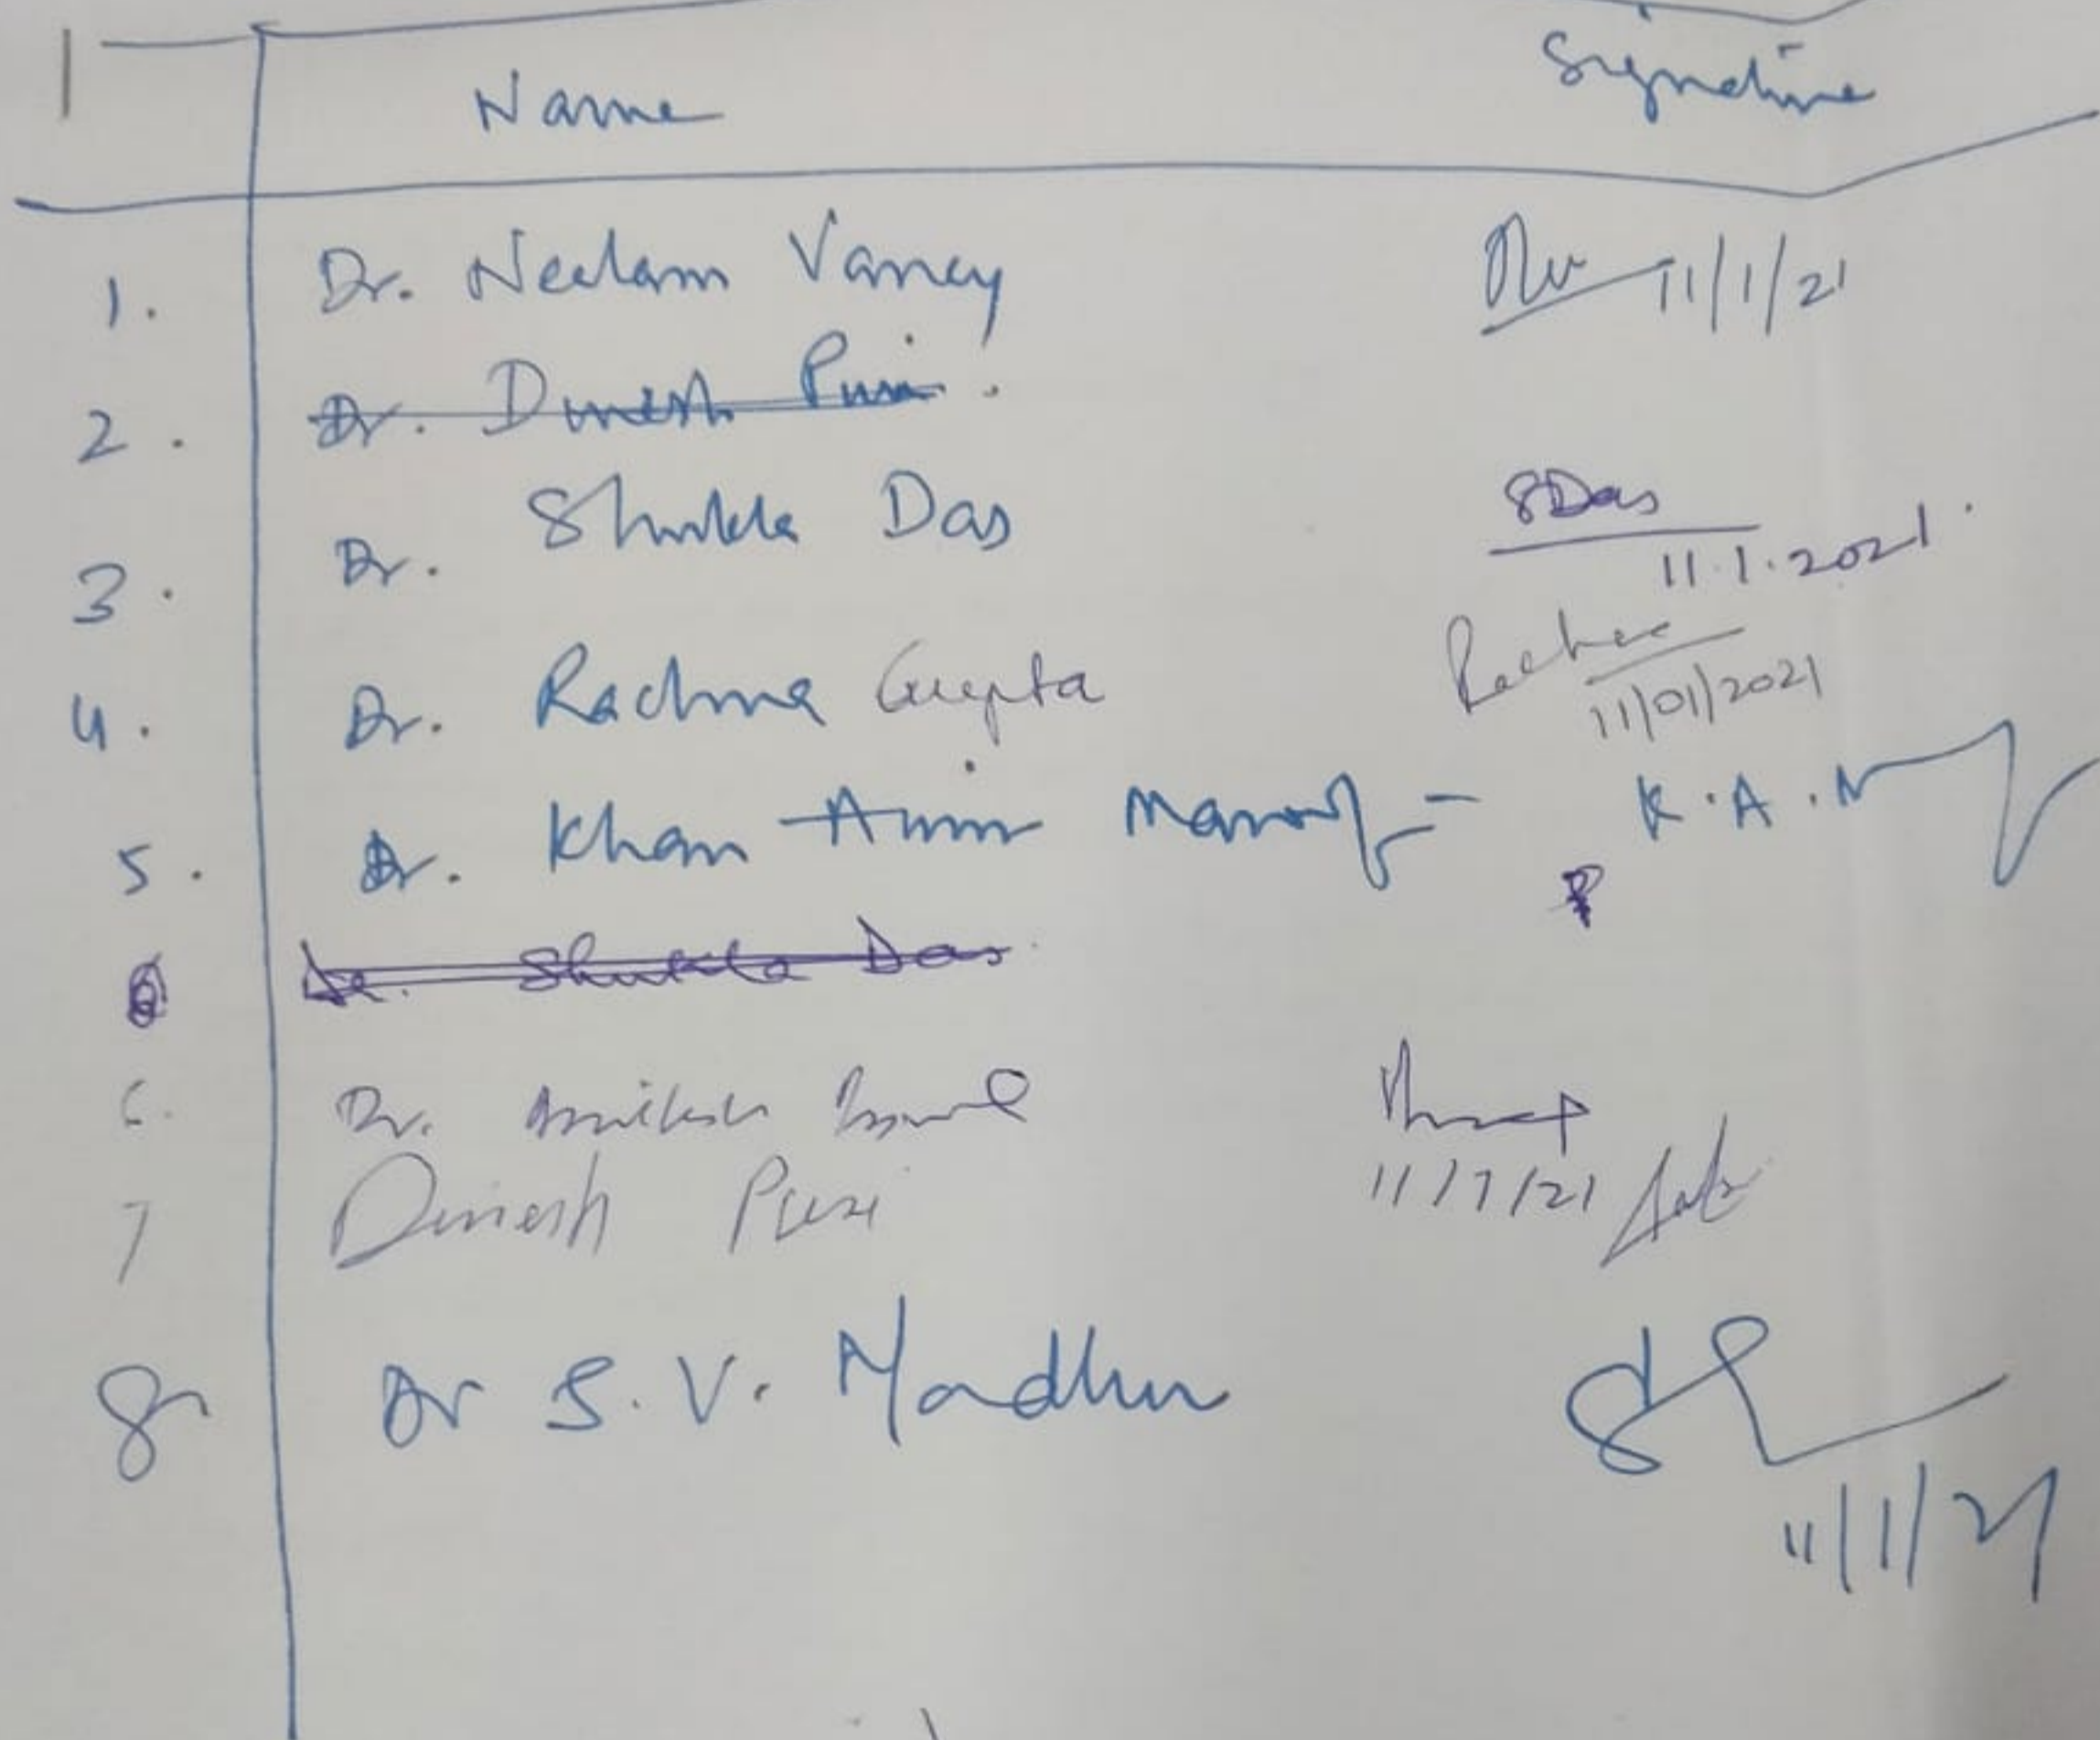 Name Signature
1. Dr. Neelam Vaney 11/1/21
2. Dr. Dinesh Puri.
3. Dr. Shukla Das SDas
11.1.2021.
4. Dr. Rachna Gupta Rachna
11/01/2021
5. Dr. Khan Amir Maroof - K.A.M
Dr. Shukla Das
6. Dr.
11/1/21
7 Dinesh Puri
8 Dr S. V. Madhu
11/1/21